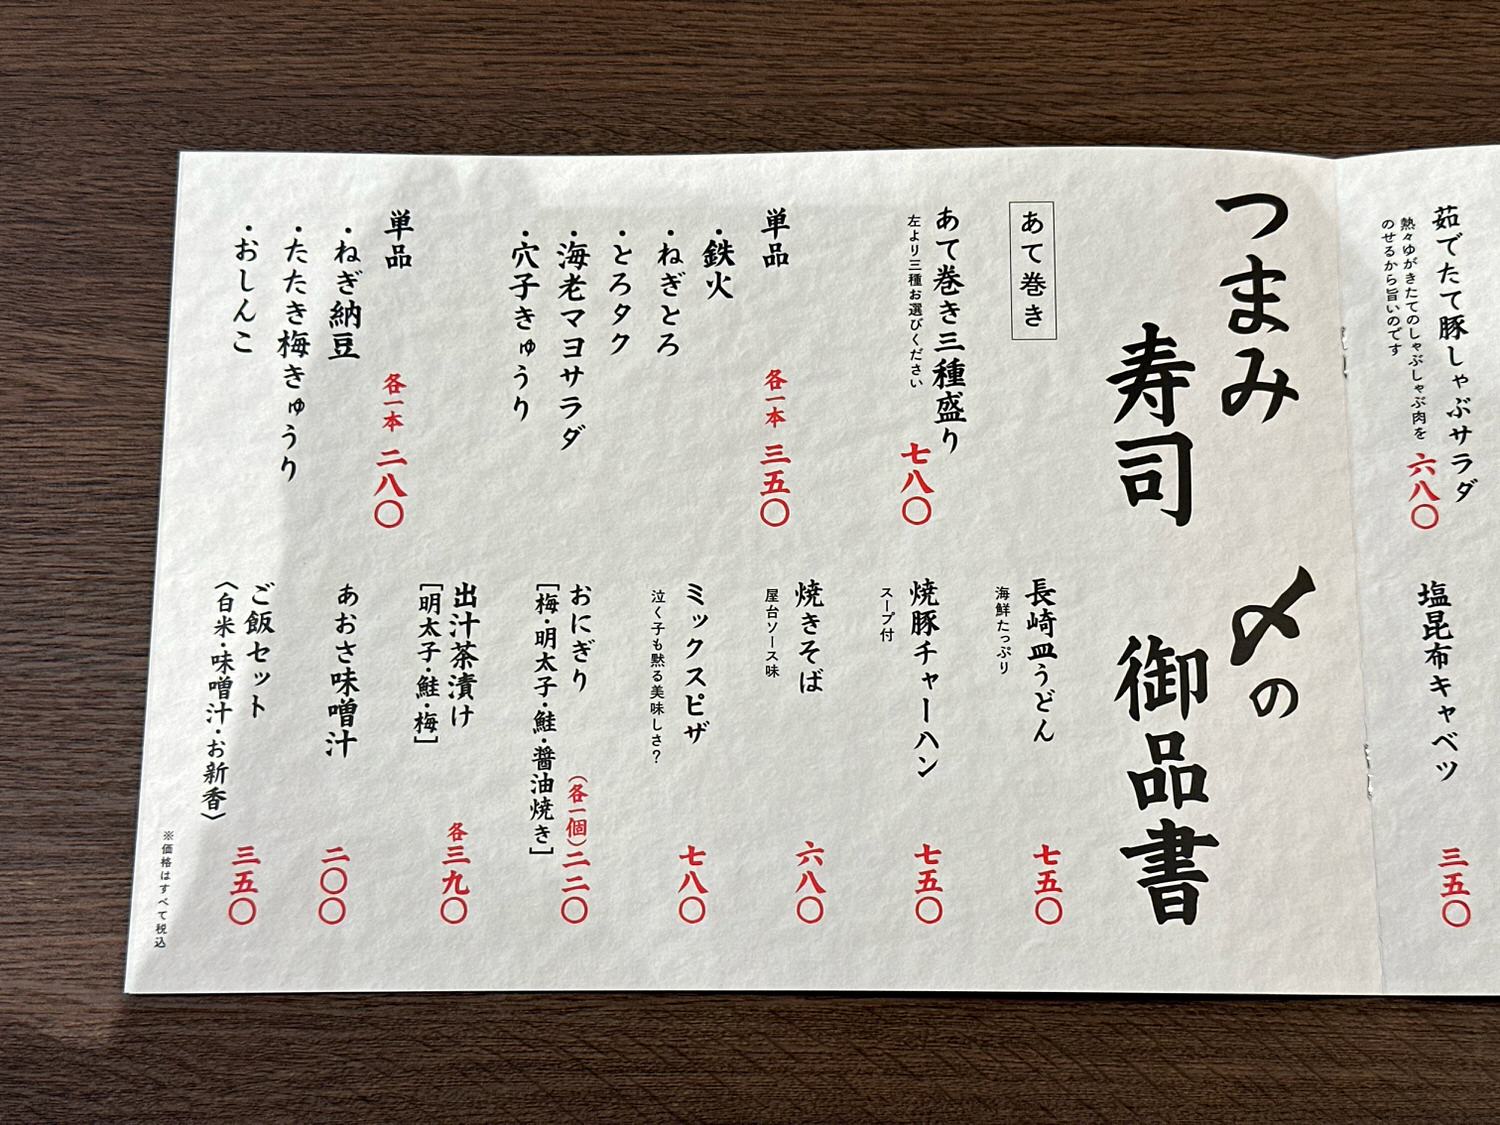 茹でたて豚しゃぶサラダ
熱々ゆがきたてのしゃぶしゃぶ肉を
のせるから旨いのです
六八〇
塩昆布キャベツ
三五〇
つまみ
寿司
〆の
御品書
あて巻き
あて巻き三種盛り
左より三種お選びください
七八〇
単品
各一本 三五〇
・鉄火
・ねぎとろ
・とろタク
・海老マヨサラダ
・穴子きゅうり
単品
各一本 二八〇
・ねぎ納豆
・たたき梅きゅうり
・おしんこ
長崎皿うどん
海鮮たっぷり
七五〇
焼豚チャーハン
スープ付
七五〇
焼きそば
屋台ソース味
六八〇
ミックスピザ
泣く子も黙る美味しさ?
七八〇
おにぎり
(各一個)二二〇
[梅・明太子・鮭・醤油焼き]
出汁茶漬け
[明太子・鮭・梅]
各三九〇
あおさ味噌汁
二〇〇
ご飯セット
〈白米・味噌汁・お新香〉
三五〇
※価格はすべて税込